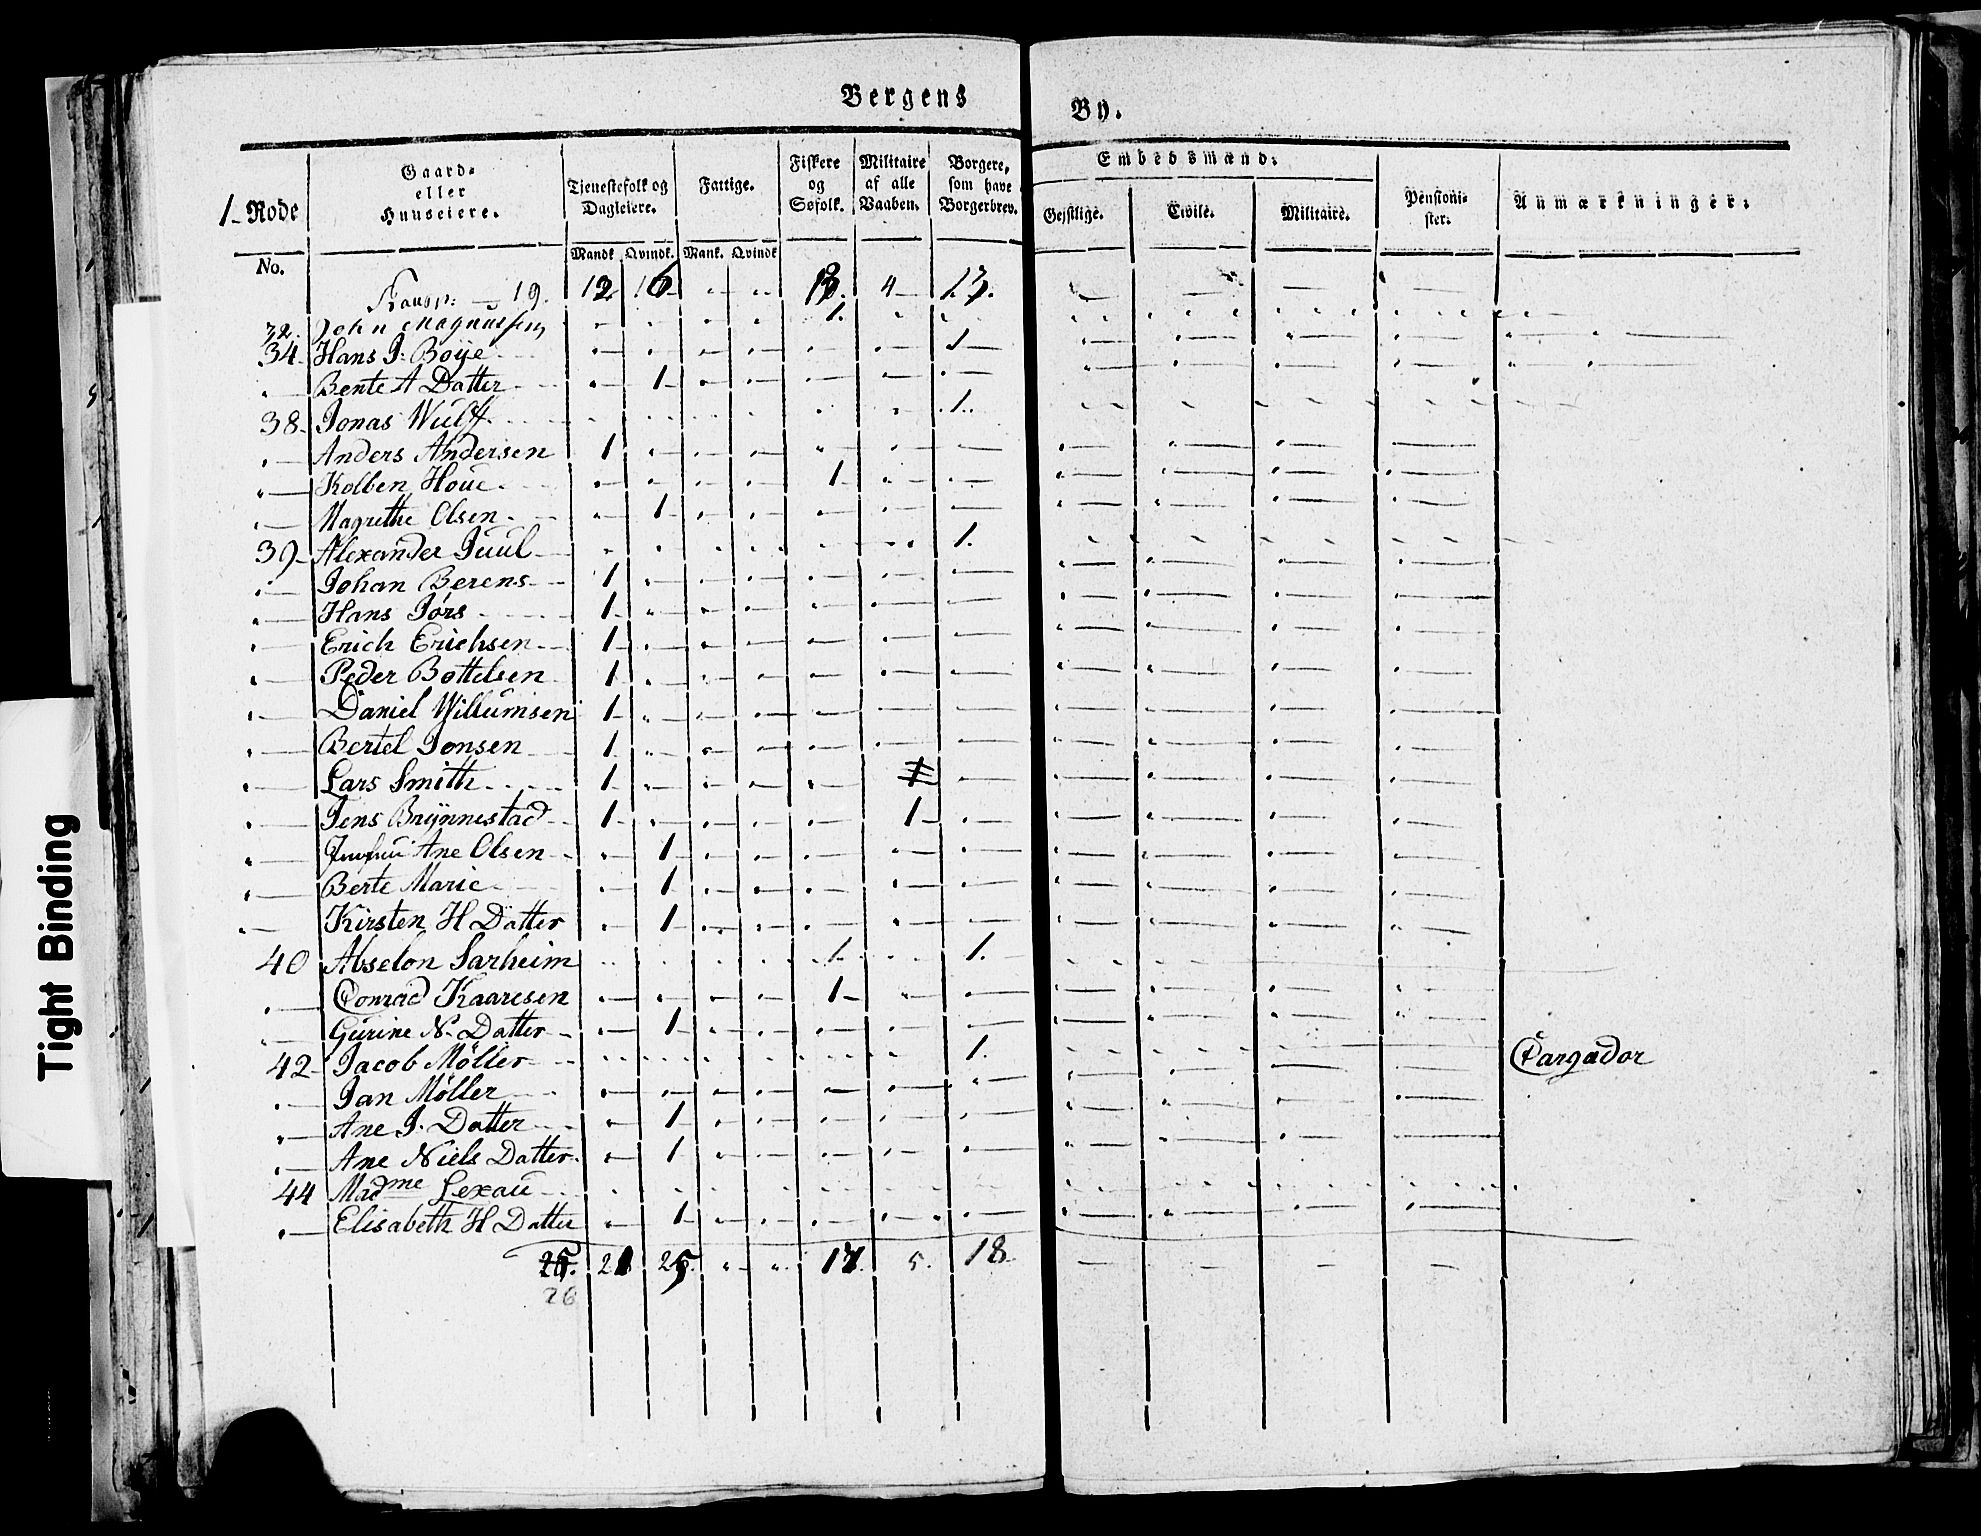 Bergens By.
1- Rode
Gaard- eller Huuseiere.
Tjenestefolk og Dagleiere.
Fattige.
Fiskere og Søfolk.
Militaire af alle Vaaben.
Borgere, som have Borgerbrev.
Embedsmænd:
Geistlige. Civile. Militaire.
Pensionister.
Anmærkninger.
No. Mandk Qvindk. Mank. Qvindk
Transp: — 19. 12 16 " " 13. 4 13.
32. John Magnussen 1.
34. Hans J. Boye 1
" Bente A Datter 1
38. Jonas Wulff 1.
" Anders Andersen 1
" Kolben Houe 1
" Magrethe Olsen 1
39 Alexander Juul 1.
" Johan Berens 1
" Hans Jørs 1
" Erich Erichsen 1
" Peder Bottelsen 1
" Daniel Willumsen 1
" Bertel Jonsen 1
" Lars Smith 1
" Jens Brynnestad 1 1
" Jomfrui Ane Olsen 1
" Berte Marie 1
" Kirsten H Datter 1
40 Abselon Sarheim 1. 1.
" Conrad Kaaresen 1
" Gurine N. Datter 1
42 Jacob Møller 1. Cargador
" Jan Møller
" Ane J. Datter 1
" Ane Niels Datter 1
44 Madme Lexau
" Elisabeth H Datter 1
25. 21 25. " " 17. 5. 18
26
Tight Binding